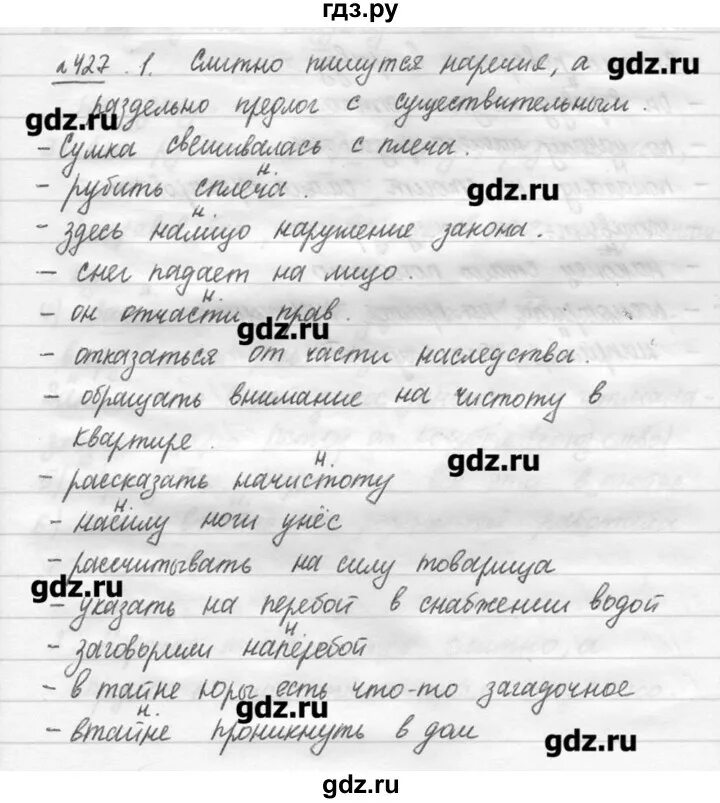 гдз.ру
№427. 1. Слитно пишутся наречия, а
gdz.ru
раздельно предлог с существительным.
gdz.ru
- Сумка свешивалась с плеча.
н.
- рубить сплеча.
gdz.ru
н.
- здесь налицо нарушение закона.
- снег падает на лицо.
н.
- он отчасти прав.
gdz.ru
- отказаться от части наследства.
- обращать внимание на чистоту в
квартире.
н.
gdz.ru
- рассказать начистоту
н.
- насилу ноги унёс
- рассчитывать на силу товарища
gdz.ru
- указать на перебой в снабжении водой
н
- заговорили наперебой
- в тайне горы есть что-то загадочное
gdz.ru
н.
- втайне проникнуть в дом
gdz.ru
gdz.ru